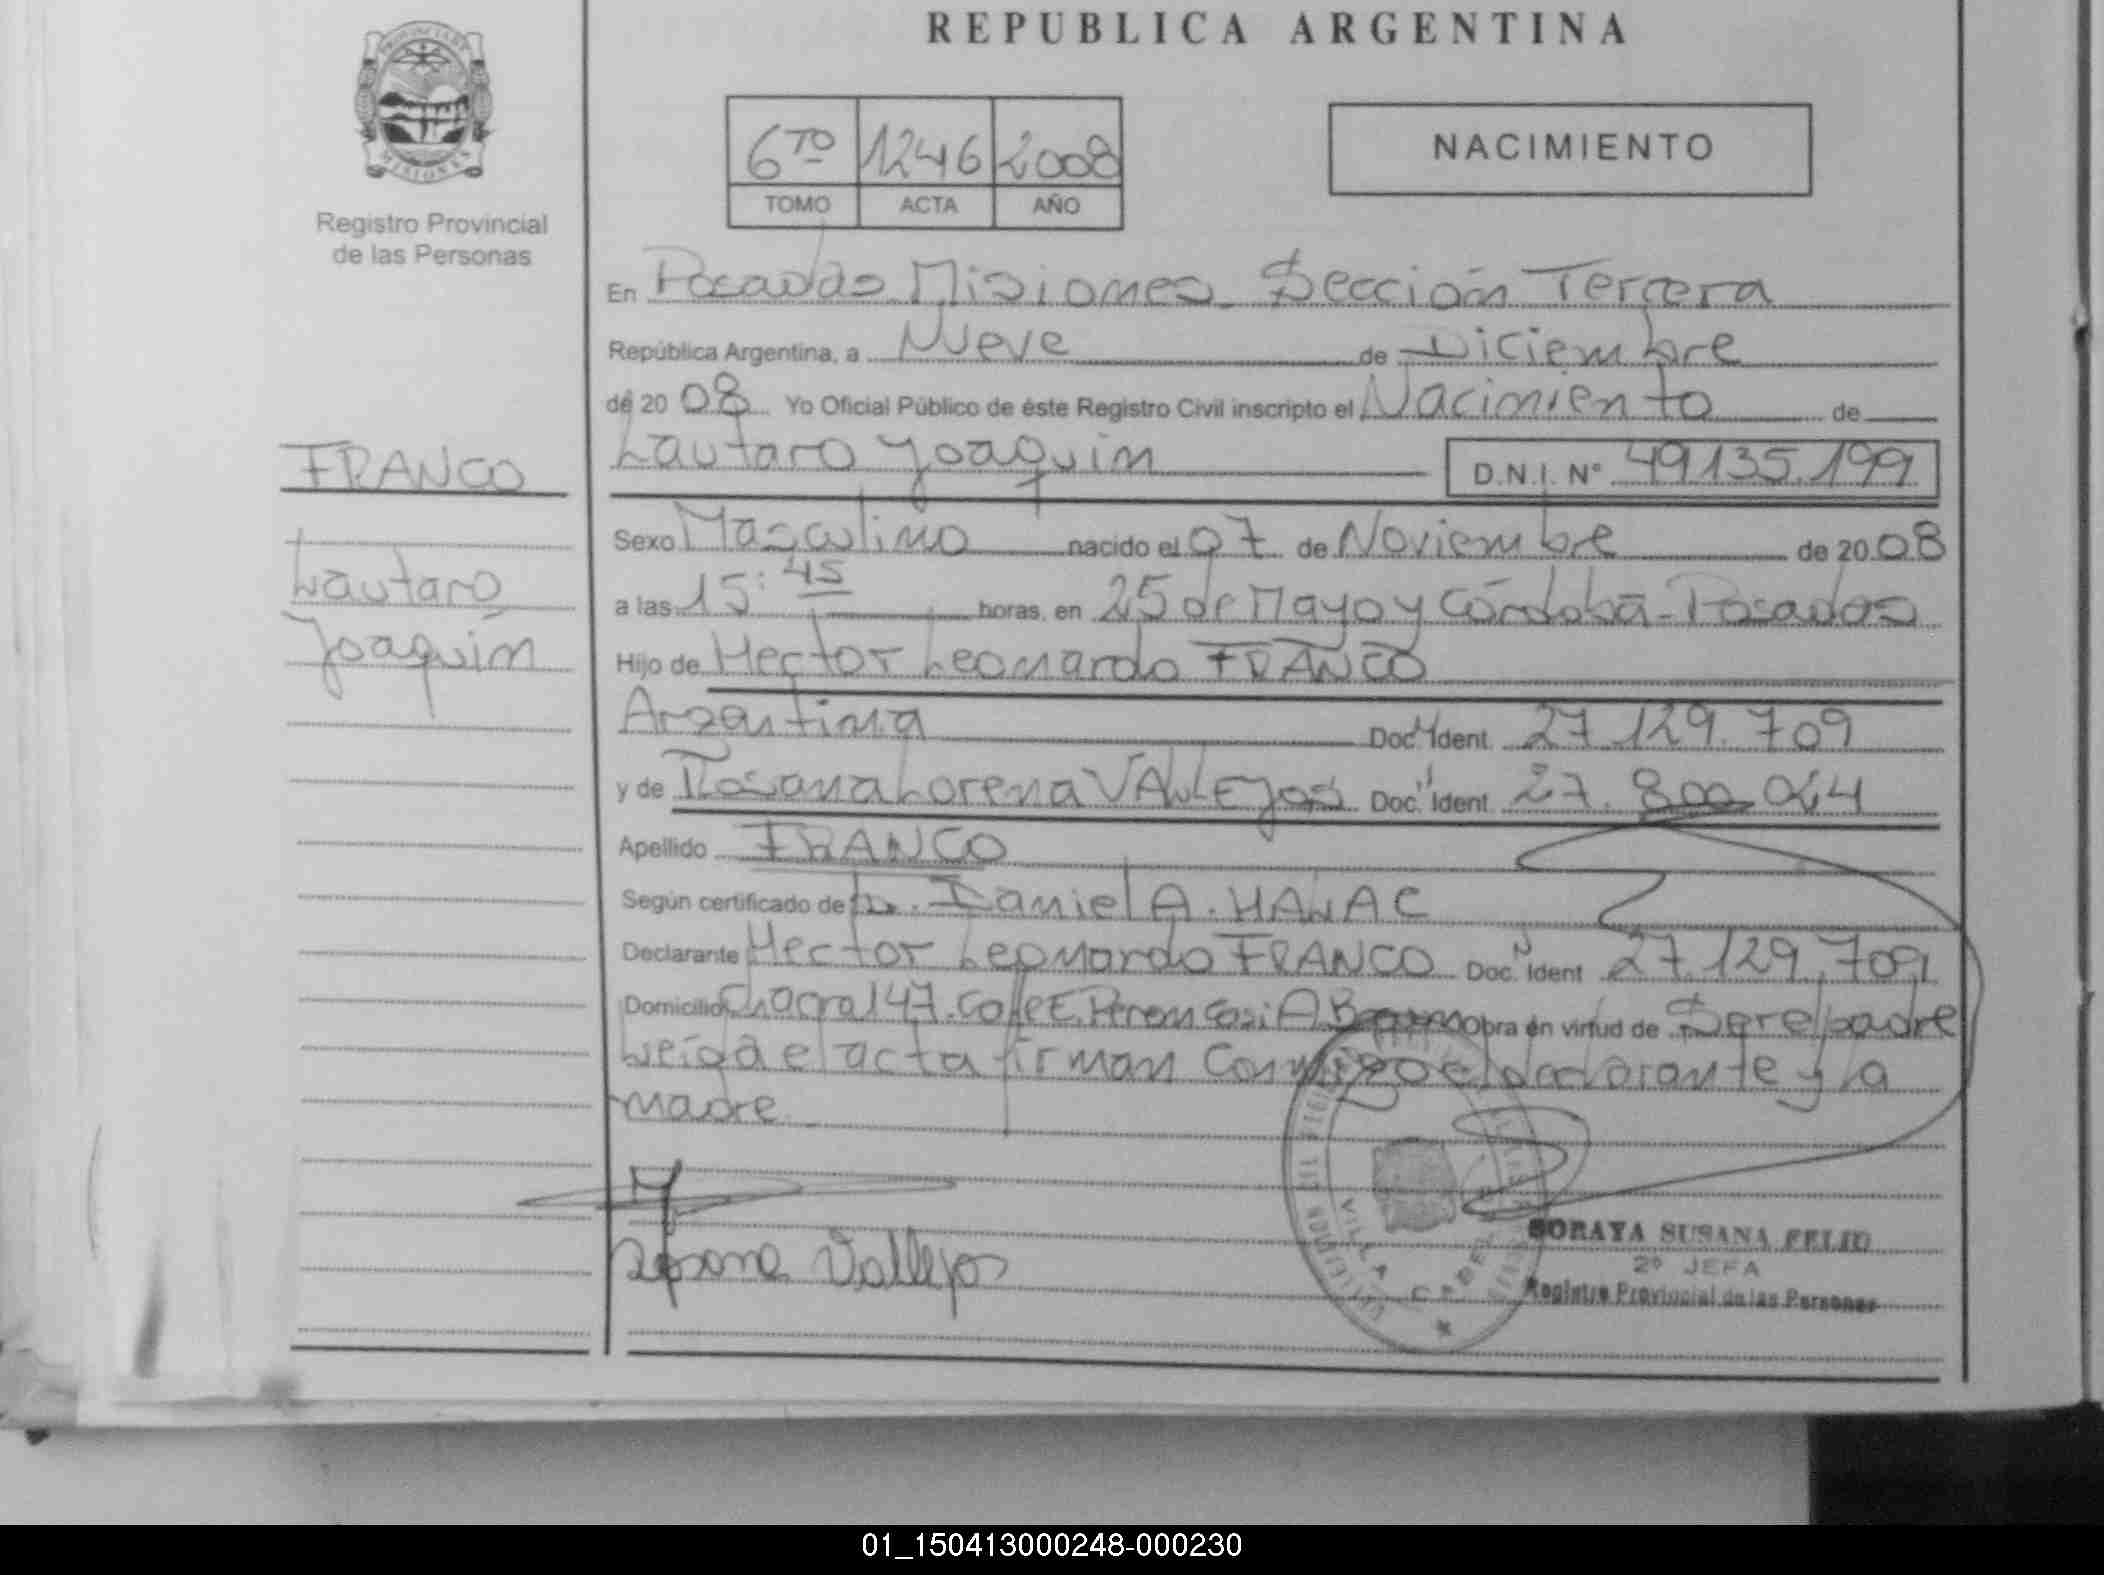 REPUBLICA ARGENTINA
PROVINCIA DE
MISIONES
Registro Provincial
de las Personas
6TO 1246 2008
TOMO ACTA AÑO
NACIMIENTO
En Posadas Misiones Sección Tercera
República Argentina, a Nueve de Diciembre
de 2008 Yo Oficial Público de éste Registro Civil inscripto el Nacimiento de
FRANCO
Lautaro Joaquin D.N.I. Nº 49135.199
Sexo Masculino nacido el 07 de Noviembre de 2008
Lautaro
a las 15:45 horas, en 25 de Mayo y Córdoba - Posadas
Joaquín
Hijo de Hector Leonardo FRANCO
Argentina Doc. Ident. 27.129.709
y de Rosana Lorena VALLEjos Doc. Ident. 27.800.044
Apellido FRANCO
Según certificado de Dr. Daniel A. HALAC
Declarante Hector Leonardo FRANCO Doc. Ident. 27.129.709
Domicilio Chacra 147. Calle E. Peron Casi A obra en virtud de Ser el padre
Leída el acta firman Conmigo el declarante y la
madre
Vallejos
VILLA CABELLO
SORAYA SUSANA FELIU
2º JEFA
Registro Provincial de las Personas
01_150413000248-000230